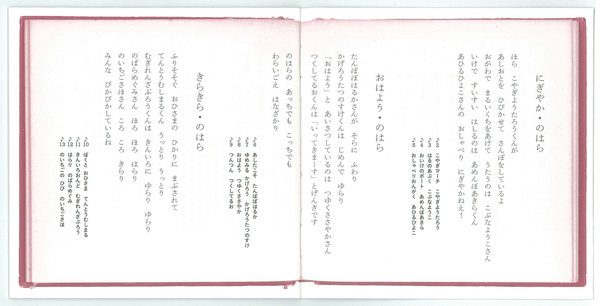 にぎやか・のはら
ほら　こやぎようたろうくんが
あしおとを　ひびかせて　さんぽをしているよ
おがわで　まるいくちをあけて　うたうのは　こぶなようこさん
いけで　すいすい　はしるのは　あめんぼあきらくん
あひるひよこさんの　おしゃべり　にぎやかねえ！
♪2　こやぎマーチ　こやぎようたろう
♪3　はるのおがく　こぶなようこ
♪4　おいけのボート　あめんぼあきら
♪5　おしゃべりおんがく　あひるひよこ
おはよう・のはら
たんぽぽはるかさんが　そらに　ふわり
かげろうたつのすけくんは　じめんで　ゆらり
「おはよう」と　あいさつしているのは　つゆくさささやかさん
つくしてるおくんは「いってきまーす」とげんきです
♪6　あしたこそ　たんぽぽはるか
♪7　ゆめみる　かげろう　かげろうたつのすけ
♪8　おはよう　つゆくさささやか
♪9　つんつん　つくしてるお
のはらの　あっちでも　こっちでも
わらいごえ　はなざかり
きらきら・のはら
ふりそそぐ　おひさまの　ひかりに　まぶされて
てんとうむしまるくん　うっとり　うっとり
むぎれんざぶろうくんは　きんいろに　ゆらり　ゆらり
のばらめぐみさん　ほろ　ほろ　はらり
のいちごさほさん　ころ　ころ　きらり
みんな　ぴかぴかしているね
♪10　ぼくた　おひさま　てんとうむしまる
♪11　きんいろおんど　むぎれんざぶろう
♪12　はらり　のばらめぐみ
♪13　のいちごのひび　のいちごさほ